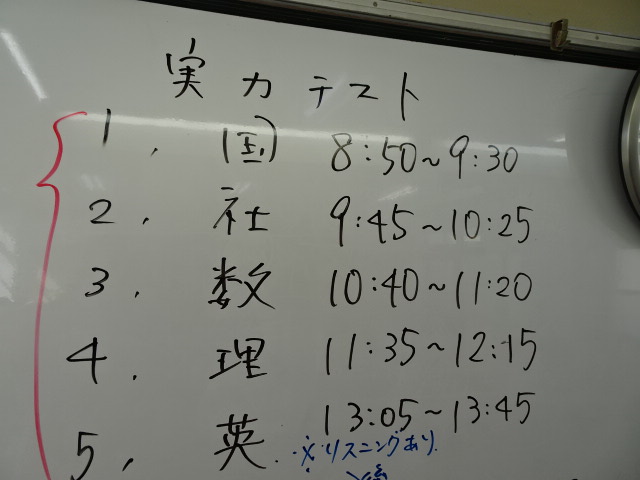 実力テスト
1. 国 8:50~9:30
2. 社 9:45~10:25
3. 数 10:40~11:20
4. 理 11:35~12:15
5. 英 13:05~13:45
※リスニングあり